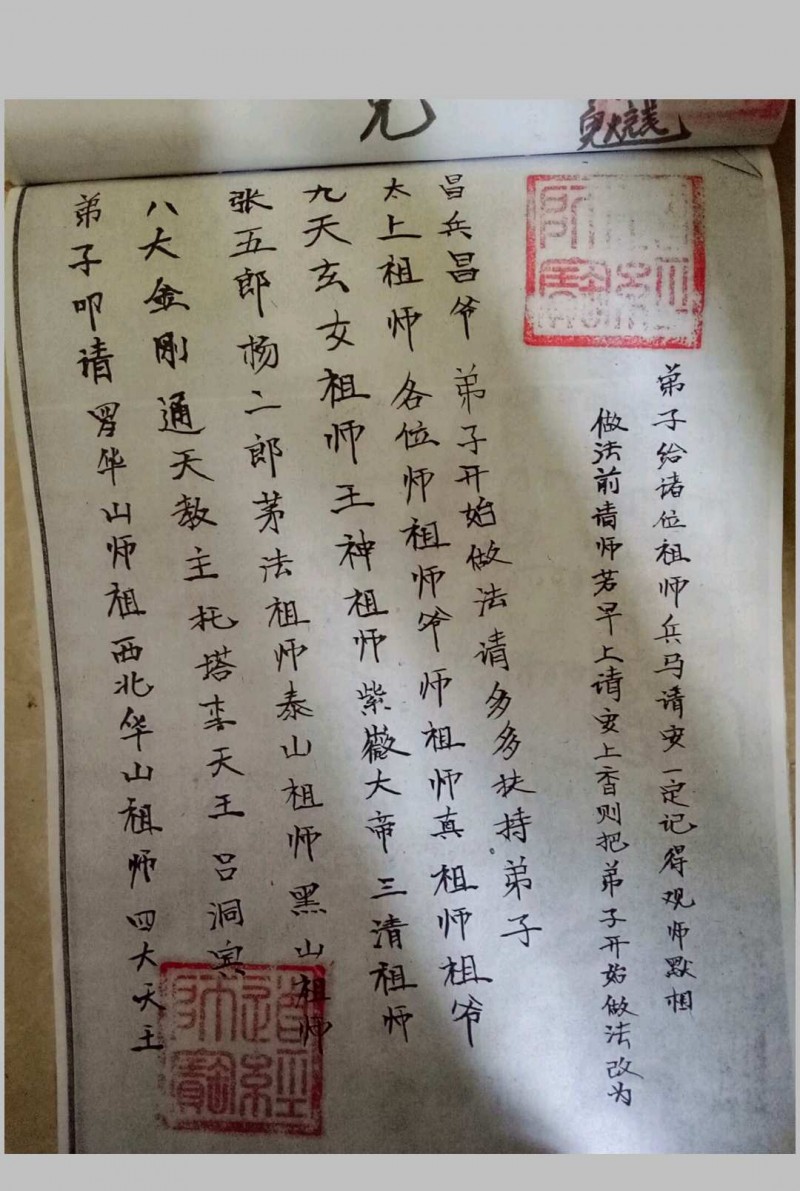 弟子叩请罗华山师祖西北华山祖师四大天王
八大金刚通天教主托塔李天王吕洞宾
张五郎杨二郎茅法祖师泰山祖师黑山祖师
九天玄女祖师王神祖师紫薇大帝三清祖师
太上祖师各位师祖师爷师祖师真祖师祖爷
昌兵昌爷弟子开始做法请多多扶持弟子
做法前请师若早上请安上香则把弟子开始做法改为
弟子给诸位祖师兵马请安一定记得观师默相
道經師寶
道經師寶